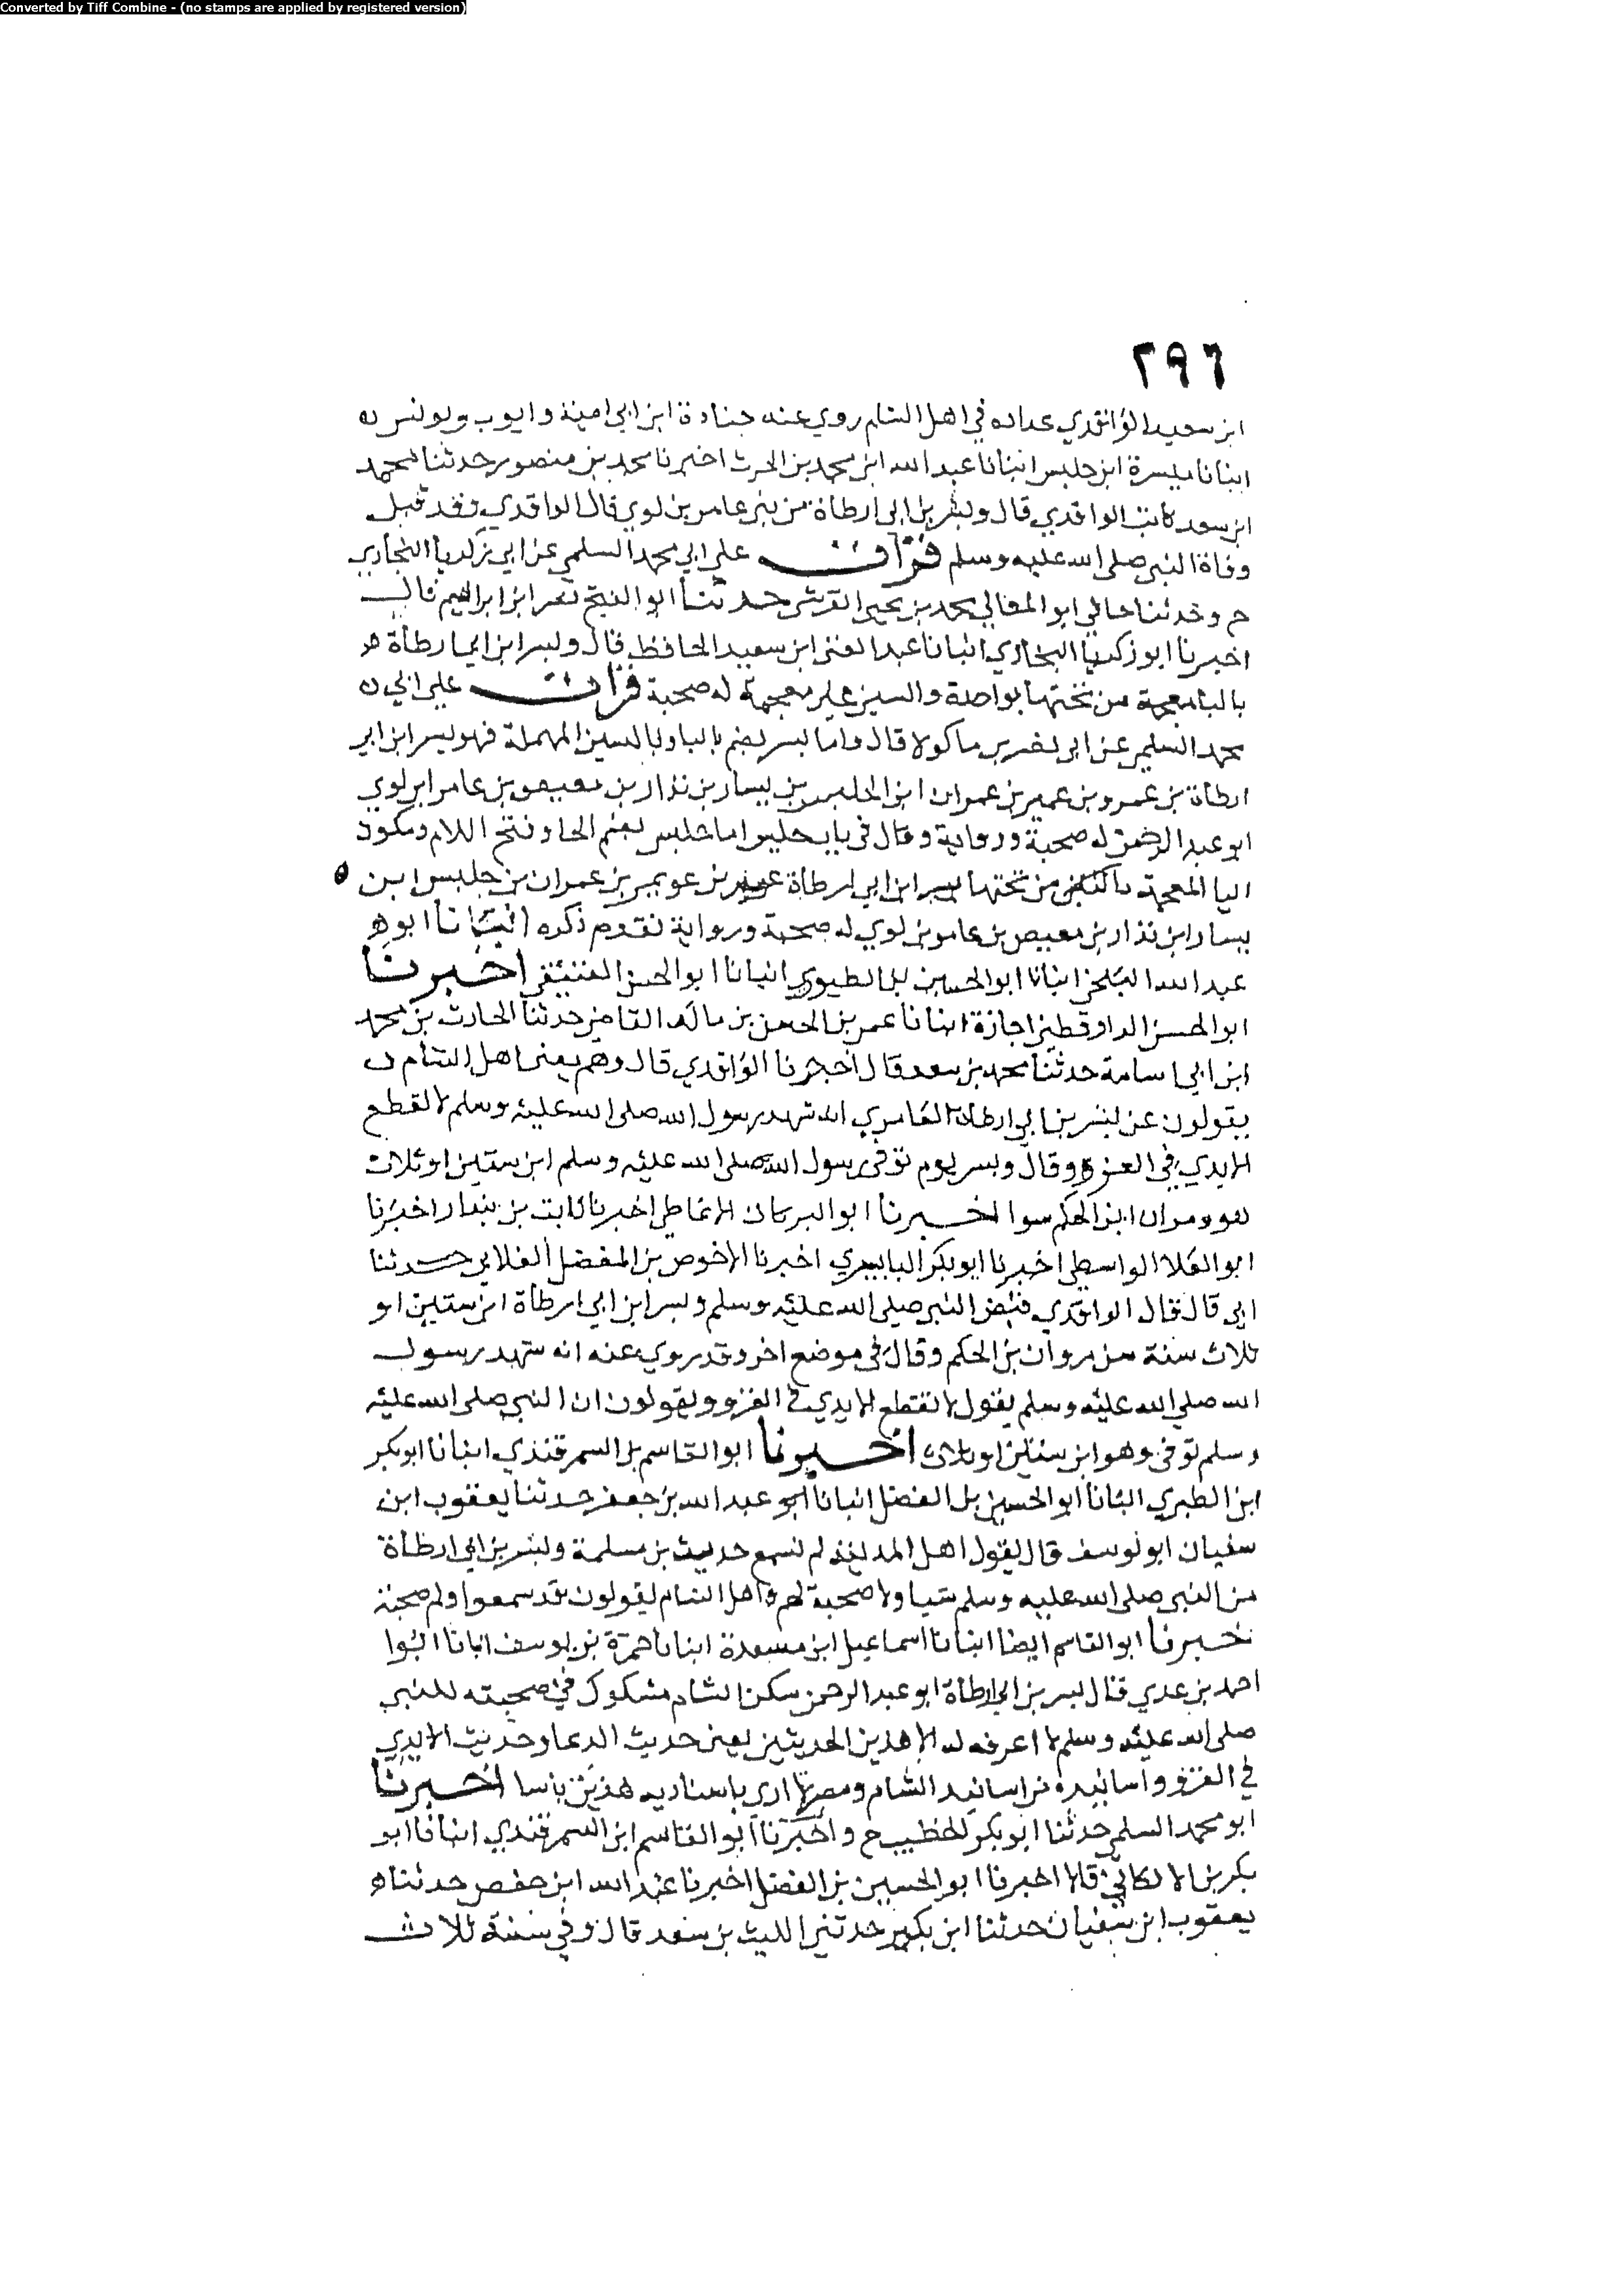 Converted by Tiff Combine - (no stamps are applied by registered version)
٢٩٦
ابن سعيد الواقدي عداده في اهل الشام روي عنه جنادة ابن ابي امية وايوب ويونس
انبانا ميسرة ابن حلبس انبانا عبد الله ابن محمد بن الحرث اخبرنا محمد بن منصور حدثنا محمد
ابن سعد كاتب الواقدي قال وبسر بن ابي ارطاة من بني عامر بن لوي قال الواقدي وقد قبل
وفاة النبي صلى الله عليه وسلم قرات على ابي محمد السلمي عن ابي زكريا البخاري
ح وحدثنا خالي ابو المعالي محمد بن يحيى القرشي حدثنا ابو الفتح نصر ابن ابراهيم قال
اخبرنا ابو زكريا البخاري انبانا عبد الغني ابن سعيد الحافظ قال وبسر ابن ابي ارطاة
بالبا معجمة من تحتها بواحدة والسين غير معجمة له صحبة قرات على ابي
محمد السلمي عن ابي نصر بن ماكولا قال واما بسر بضم بالبا وبالسين المهملة فهو بسر ابن ابي
ارطاة بن عمرو بن عمير بن عمران ابن الحلبس بن يسار بن نزار بن معيص بن عامر ابن لوي
ابو عبد الرحمن له صحبة ورواية وقال في باب حلبس اما حلبس بضم الحا وفتح اللام وسكون
اليا المعجمة باثنتين من تحتها بسر ابن ابي ارطاة بن عويمر بن عمران بن حلبس ابن
يسار ابن نزار بن معيص بن عامر بن لوي له صحبة ورواية تقدم ذكره انبانا ابو
عبد الله البلخي انبانا ابو الحسين بن الطيوري انبانا ابو الحسن العتيقي اخبرنا
ابو الحسن الدارقطني اجازة انبانا عمر بن الحسن بن مالك القاضي حدثنا الحارث بن محمد
ابن ابي اسامة حدثنا محمد بن سعد قال اخبرنا الواقدي قال وهم يعني اهل الشام
يقولون عن بسر بن ابي ارطاة العامري انه شهد رسول الله صلى الله عليه وسلم لا تقطع
الايدي في الغزو وقال وبسر يوم توفى رسول الله صلى الله عليه وسلم ابن سنتين او ثلاث
هو ومروان ابن الحكم سوا اخبرنا ابو البركات الانماطي اخبرنا ثابت بن بندار اخبرنا
ابو العلا الواسطي اخبرنا ابو بكر البابسيري اخبرنا الاخوص بن المفضل الغلابي حدثنا
ابي قال قال الواقدي قبض النبي صلى الله عليه وسلم وبسر ابن ابي ارطاة ابن سنتين او
ثلاث سنة من مروان بن الحكم وقال في موضع اخر وقد روي عنه انه شهد رسول
الله صلى الله عليه وسلم يقول لا تقطع الايدي في الغزو ويقولون ان النبي صلى الله عليه
وسلم توفى وهو ابن سنتين او ثلاث اخبرنا ابو القاسم بن السمرقندي انبانا ابو بكر
ابن الطبري انبانا ابو الحسين بن الفضل انبانا ابو عبد الله بن جعفر حدثنا يعقوب ابن
سفيان ابو يوسف قال يقول اهل المدينة لم نسمع حديث بن مسلمة وبسر بن ابي ارطاة
من النبي صلى الله عليه وسلم شيا ولا صحبة لهم واهل الشام يقولون قد سمعوا ولهم صحبة
خبرنا ابو القاسم ايضا انبانا اسماعيل ابن مسعدة انبانا حمزة بن يوسف انبانا ابوا
احمد بن عدي قال بسر بن ابي ارطاة ابو عبد الرحمن سكن الشام مشكوك في صحبته للنبي
صلى الله عليه وسلم لا اعرف له الا هذين الحديثين يعني حديث الدعا وحديث الايدي
في الغزو واسانيده من اسانيد الشام ومصر لا ارى باسناديه هذين باسا اخبرنا
ابو محمد السلمي حدثنا ابو بكر الخطيب ح واخبرنا ابو القاسم ابن السمرقندي انبانا ابو
بكر بن الالكائي قالا اخبرنا ابو الحسين بن الفضل اخبرنا عبد الله ابن جعفر حدثنا
يعقوب ابن سفيان حدثنا ابن بكير حدثني الليث بن سعد قال وفي سنة ثلاث